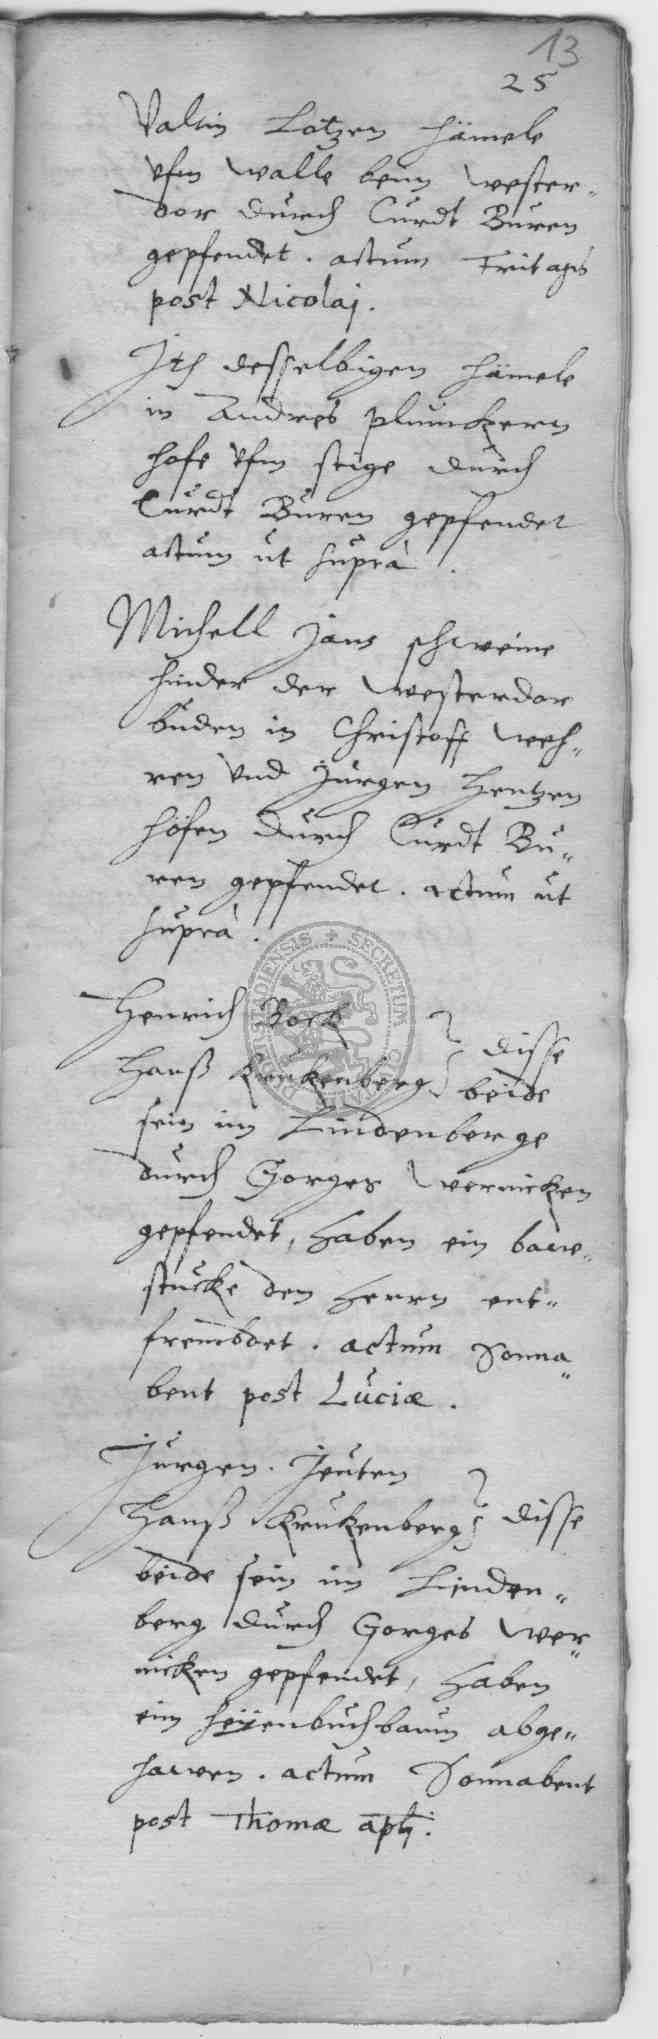 13
25
Valtin Lotzen hämele
vfm walle beim wester-
dor durch Curdt Buren
gepfendet. actum Fritags
post Nicolaj.
Jtem desselbigen hämele
in Andres Plunckern
hofe vfm stige durch
Curdt Buren gepfendet
actum ut suprà.
Michell Jans schweine
hinder der westerdor
buden in Christoff Weh-
ren vnd Jurgen Hentzen
höfen durch Curdt Bu-
ren gepfendet. actum ut
suprà.
Henrich Bock
disse
Hanß Krukenberg beide
sein im Lindenberge
durch Gorges Wernicken
gepfendet, haben ein baw-
stucke den Herrn ent-
frembdet. actum Sonna-
bent post Luciæ.
Jurgen Jeuten
Hanß Krukenberg disse
beide sein im Linden-
berg durch Gorges Wer-
nicken gepfendet, haben
ein heÿenbuchbaum abge-
hawen. actum Sonnabent
post Thomæ apli.
SECRETUM